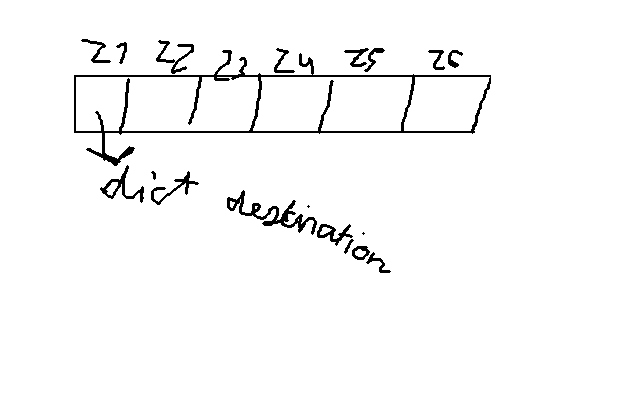 Z1 Z2 Z3 Z4 Z5 Z6
dict destination